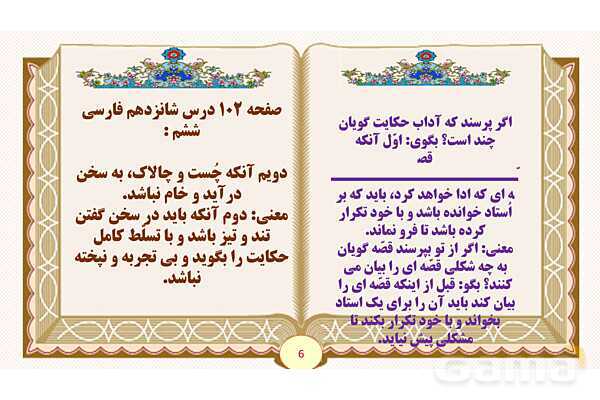 اگر پرسند که آداب حکایت گویان
چند است؟ بگوی: اوّل آنکه
قصـ
ـه ای که ادا خواهد کرد، باید که بر
اُستاد خوانده باشد و با خود تکرار
کرده باشد تا فرو نماند.
معنی: اگر از تو بپرسند قصّه گویان
به چه شکلی قصّه ای را بیان می
کنند؟ بگو: قبل از اینکه قصّه ای را
بیان کند باید آن را برای یک استاد
بخواند و با خود تکرار بکند تا
مشکلی پیش نیاید.
صفحه ۱۰۲ درس شانزدهم فارسی
ششم :
دویم آنکه چُست و چالاک، به سخن
درآید و خام نباشد.
معنی: دوم آنکه باید در سخن گفتن
تند و تیز باشد و با تسلّط کامل
حکایت را بگوید و بی تجربه و نپخته
نباشد.
6
Gama